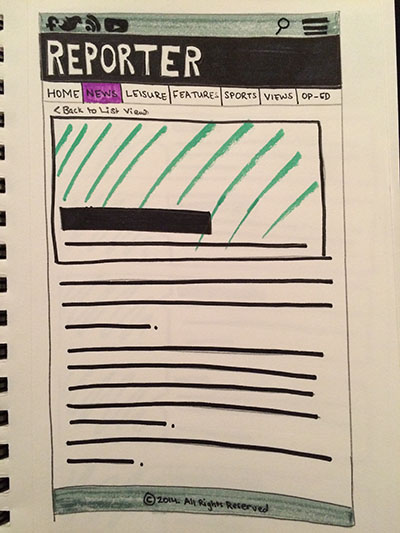 REPORTER
HOME NEWS LEISURE FEATURES SPORTS VIEWS OP-ED
< Back to List View
© 2014 All Rights Reserved